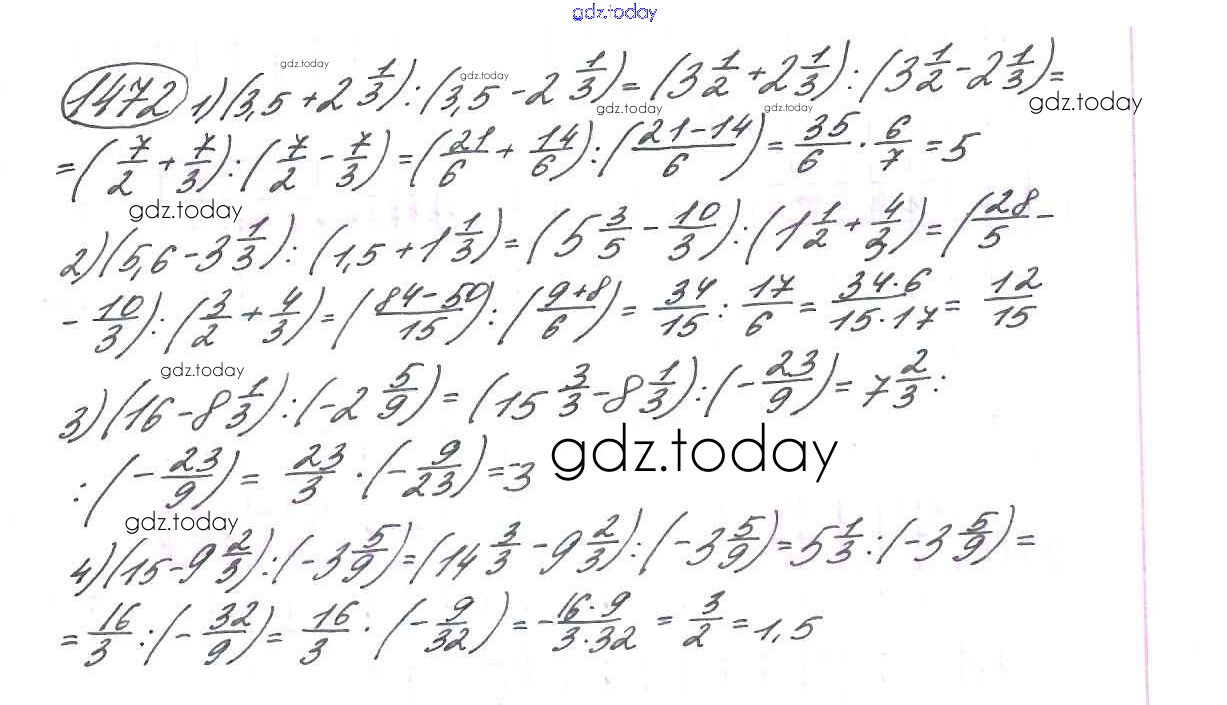 gdz.today
1472 1) (3,5 + 2 1/3) : (3,5 - 2 1/3) = (3 1/2 + 2 1/3) : (3 1/2 - 2 1/3) =
gdz.today gdz.today gdz.today gdz.today gdz.today
= (7/2 + 7/3) : (7/2 - 7/3) = (21/6 + 14/6) : (21-14/6) = 35/6 · 6/7 = 5
gdz.today
2) (5,6 - 3 1/3) : (1,5 + 1 1/3) = (5 3/5 - 10/3) : (1 1/2 + 4/3) = (28/5 -
- 10/3) : (3/2 + 4/3) = (84-50/15) : (9+8/6) = 34/15 : 17/6 = 34·6/15·17 = 12/15
gdz.today
3) (16 - 8 1/3) : (-2 5/9) = (15 3/3 - 8 1/3) : (-23/9) = 7 2/3 :
: (-23/9) = 23/3 · (-9/23) = -3 gdz.today
gdz.today
4) (15 - 9 2/3) : (-3 5/9) = (14 3/3 - 9 2/3) : (-3 5/9) = 5 1/3 : (-3 5/9) =
= 16/3 : (-32/9) = 16/3 · (-9/32) = -16·9/3·32 = 3/2 = 1,5